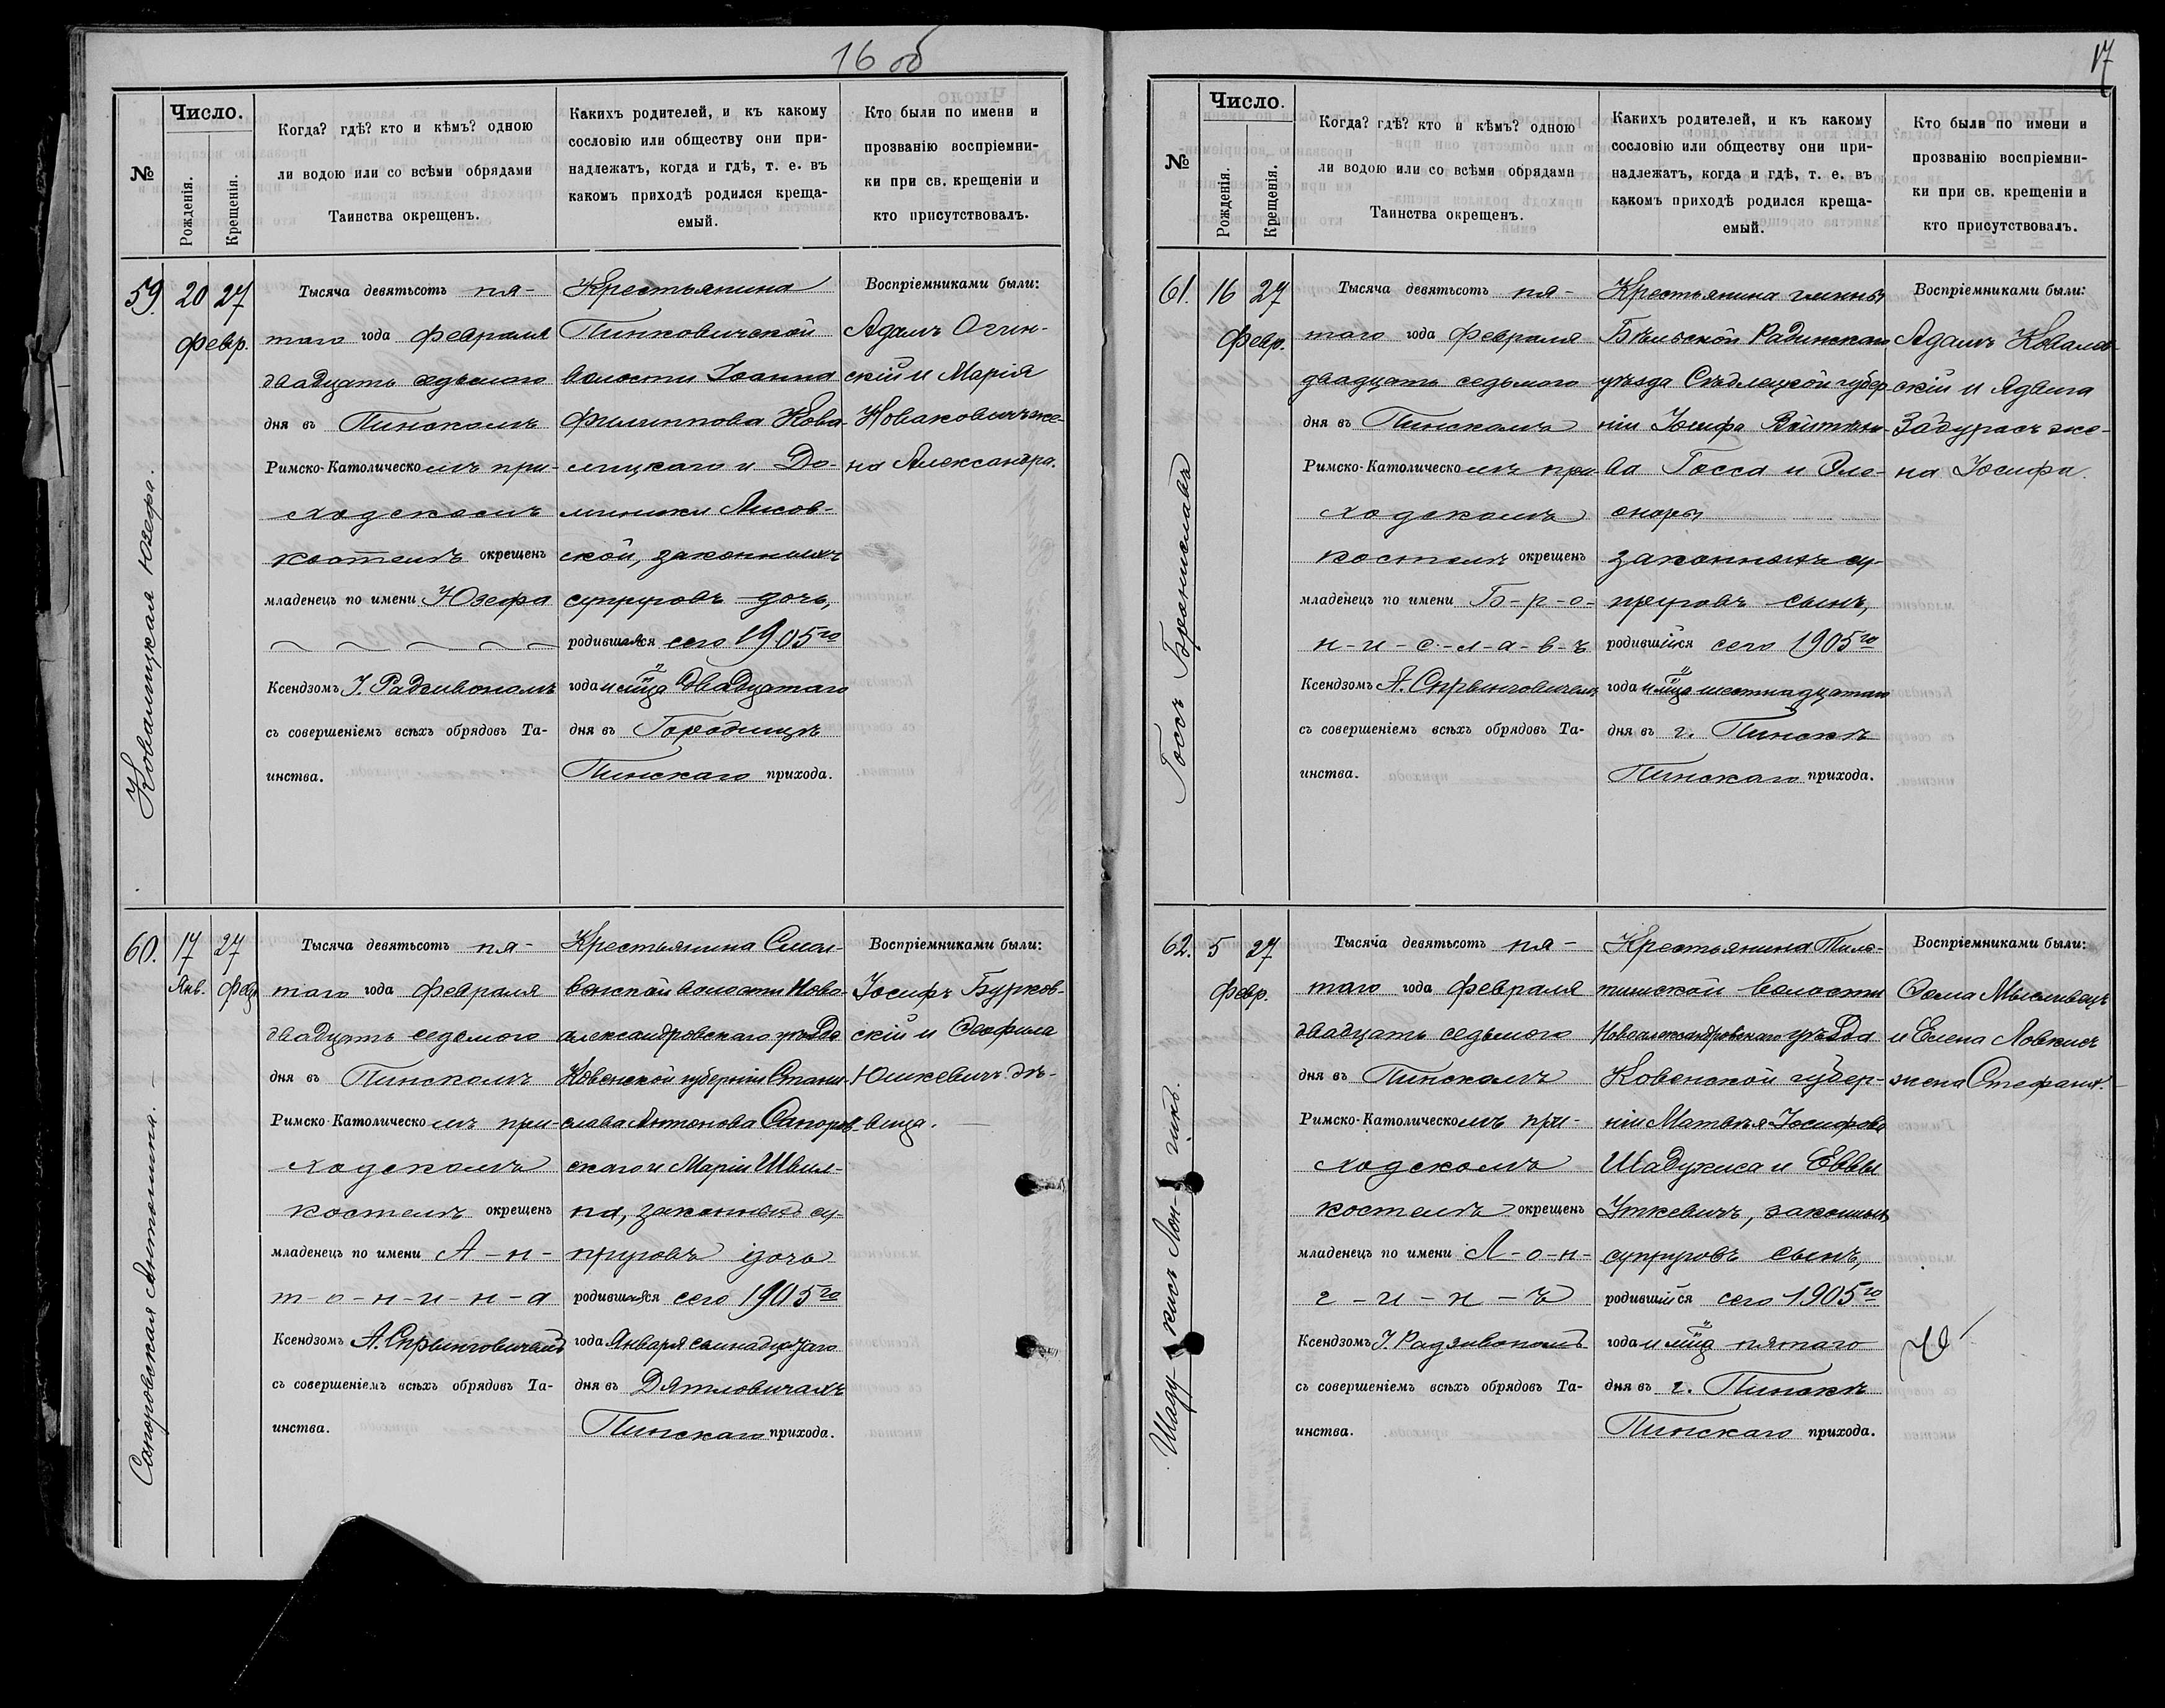 16 об
№
Число.
Рожденія.
Крещенія.
Когда? гдѣ? кто и кѣмъ? одною
ли водою или со всѣми обрядами
Таинства окрещенъ.
Какихъ родителей, и къ какому
сословію или обществу они при-
надлежатъ, когда и гдѣ, т. е. въ
какомъ приходѣ родился креща-
емый.
Кто были по имени и
прозванію воспріемни-
ки при св. крещеніи и
кто присутствовалъ.
59.
Ковалицкая Юзефа.
20 27
Февр.
Тысяча девятьсотъ пя-
таго года февраля
двадцать седьмого
дня въ Пинскомъ
Римско-Католическомъ при-
ходскомъ
костелѣ окрещенъ
младенецъ по имени Юзефа
Ксендзомъ І. Радзивономъ
съ совершеніемъ всѣхъ обрядовъ Та-
инства.
Крестьянина
Пинковичской
волости Іоанна
Филиппова Кова-
лицкаго и До-
миники Лисов-
ской, законныхъ
супруговъ дочь,
родившаяся сего 1905го
года и м-ца двадцатаго
дня въ Городищѣ
Пинскаго прихода.
Воспріемниками были:
Адамъ Огин-
скій и Марія
Новаковичъ же-
на Александра.
60.
Сапоровская Антонина.
17 27
Янв. Февр.
Тысяча девятьсотъ пя-
таго года февраля
двадцать седьмого
дня въ Пинскомъ
Римско-Католическомъ при-
ходскомъ
костелѣ окрещенъ
младенецъ по имени А-н-
т-о-н-и-н-а
Ксендзомъ А. Спрынговичемъ
съ совершеніемъ всѣхъ обрядовъ Та-
инства.
Крестьянина Смол-
венской волости Ново-
александровскаго уѣзда
Ковенской губерніи Стани-
слава Антонова Сапоров-
скаго и Маріи Швил-
па, законныхъ су-
пруговъ дочь
родившаяся сего 1905го
года Января семнадцатаго
дня въ Дятловичахъ
Пинскаго прихода.
Воспріемниками были:
Іосифъ Бурков-
скій и Ѳеофила
Юшкевичъ дѣ-
вица.
17
№
Число.
Рожденія.
Крещенія.
Когда? гдѣ? кто и кѣмъ? одною
ли водою или со всѣми обрядами
Таинства окрещенъ.
Какихъ родителей, и къ какому
сословію или обществу они при-
надлежатъ, когда и гдѣ, т. е. въ
какомъ приходѣ родился креща-
емый.
Кто были по имени и
прозванію воспріемни-
ки при св. крещеніи и
кто присутствовалъ.
61.
Госсъ Брониславъ
16 27
Февр.
Тысяча девятьсотъ пя-
таго года февраля
двадцать седьмого
дня въ Пинскомъ
Римско-Католическомъ при-
ходскомъ
костелѣ окрещенъ
младенецъ по имени Б-р-о-
н-и-с-л-а-в-ъ
Ксендзомъ А. Спрынговичемъ
съ совершеніемъ всѣхъ обрядовъ Та-
инства.
Крестьянина гмины
Бѣльской Радинскаго
уѣзда Сѣдлецкой губер-
ніи Іосифа Войтѣхо-
ва Госса и Эле-
оноры
законныхъ су-
пруговъ сынъ,
родившійся сего 1905го
года и м-ца шестнадцатаго
дня въ г. Пинскѣ
Пинскаго прихода.
Воспріемниками были:
Адамъ Ковалев-
скій и Ядвига
Задурасъ же-
на Іосифа.
62.
Шадужисъ Лонгинъ.
5 27
Февр.
Тысяча девятьсотъ пя-
таго года февраля
двадцать седьмого
дня въ Пинскомъ
Римско-Католическомъ при-
ходскомъ
костелѣ окрещенъ
младенецъ по имени Л-о-н-
г-и-н-ъ
Ксендзомъ І. Радзивономъ
съ совершеніемъ всѣхъ обрядовъ Та-
инства.
Крестьянина Тиль-
тишской волости
Новоалександровскаго уѣзда
Ковенской губер-
ніи Матвѣя Іосифова
Шадужиса и Еввы
Уткевичъ, законныхъ
супруговъ сынъ,
родившійся сего 1905го
года и м-ца пятаго
дня въ г. Пинскѣ
Пинскаго прихода.
Воспріемниками были:
Ѳома Мысливецъ
и Елена Ловкисъ
жена Стефана.